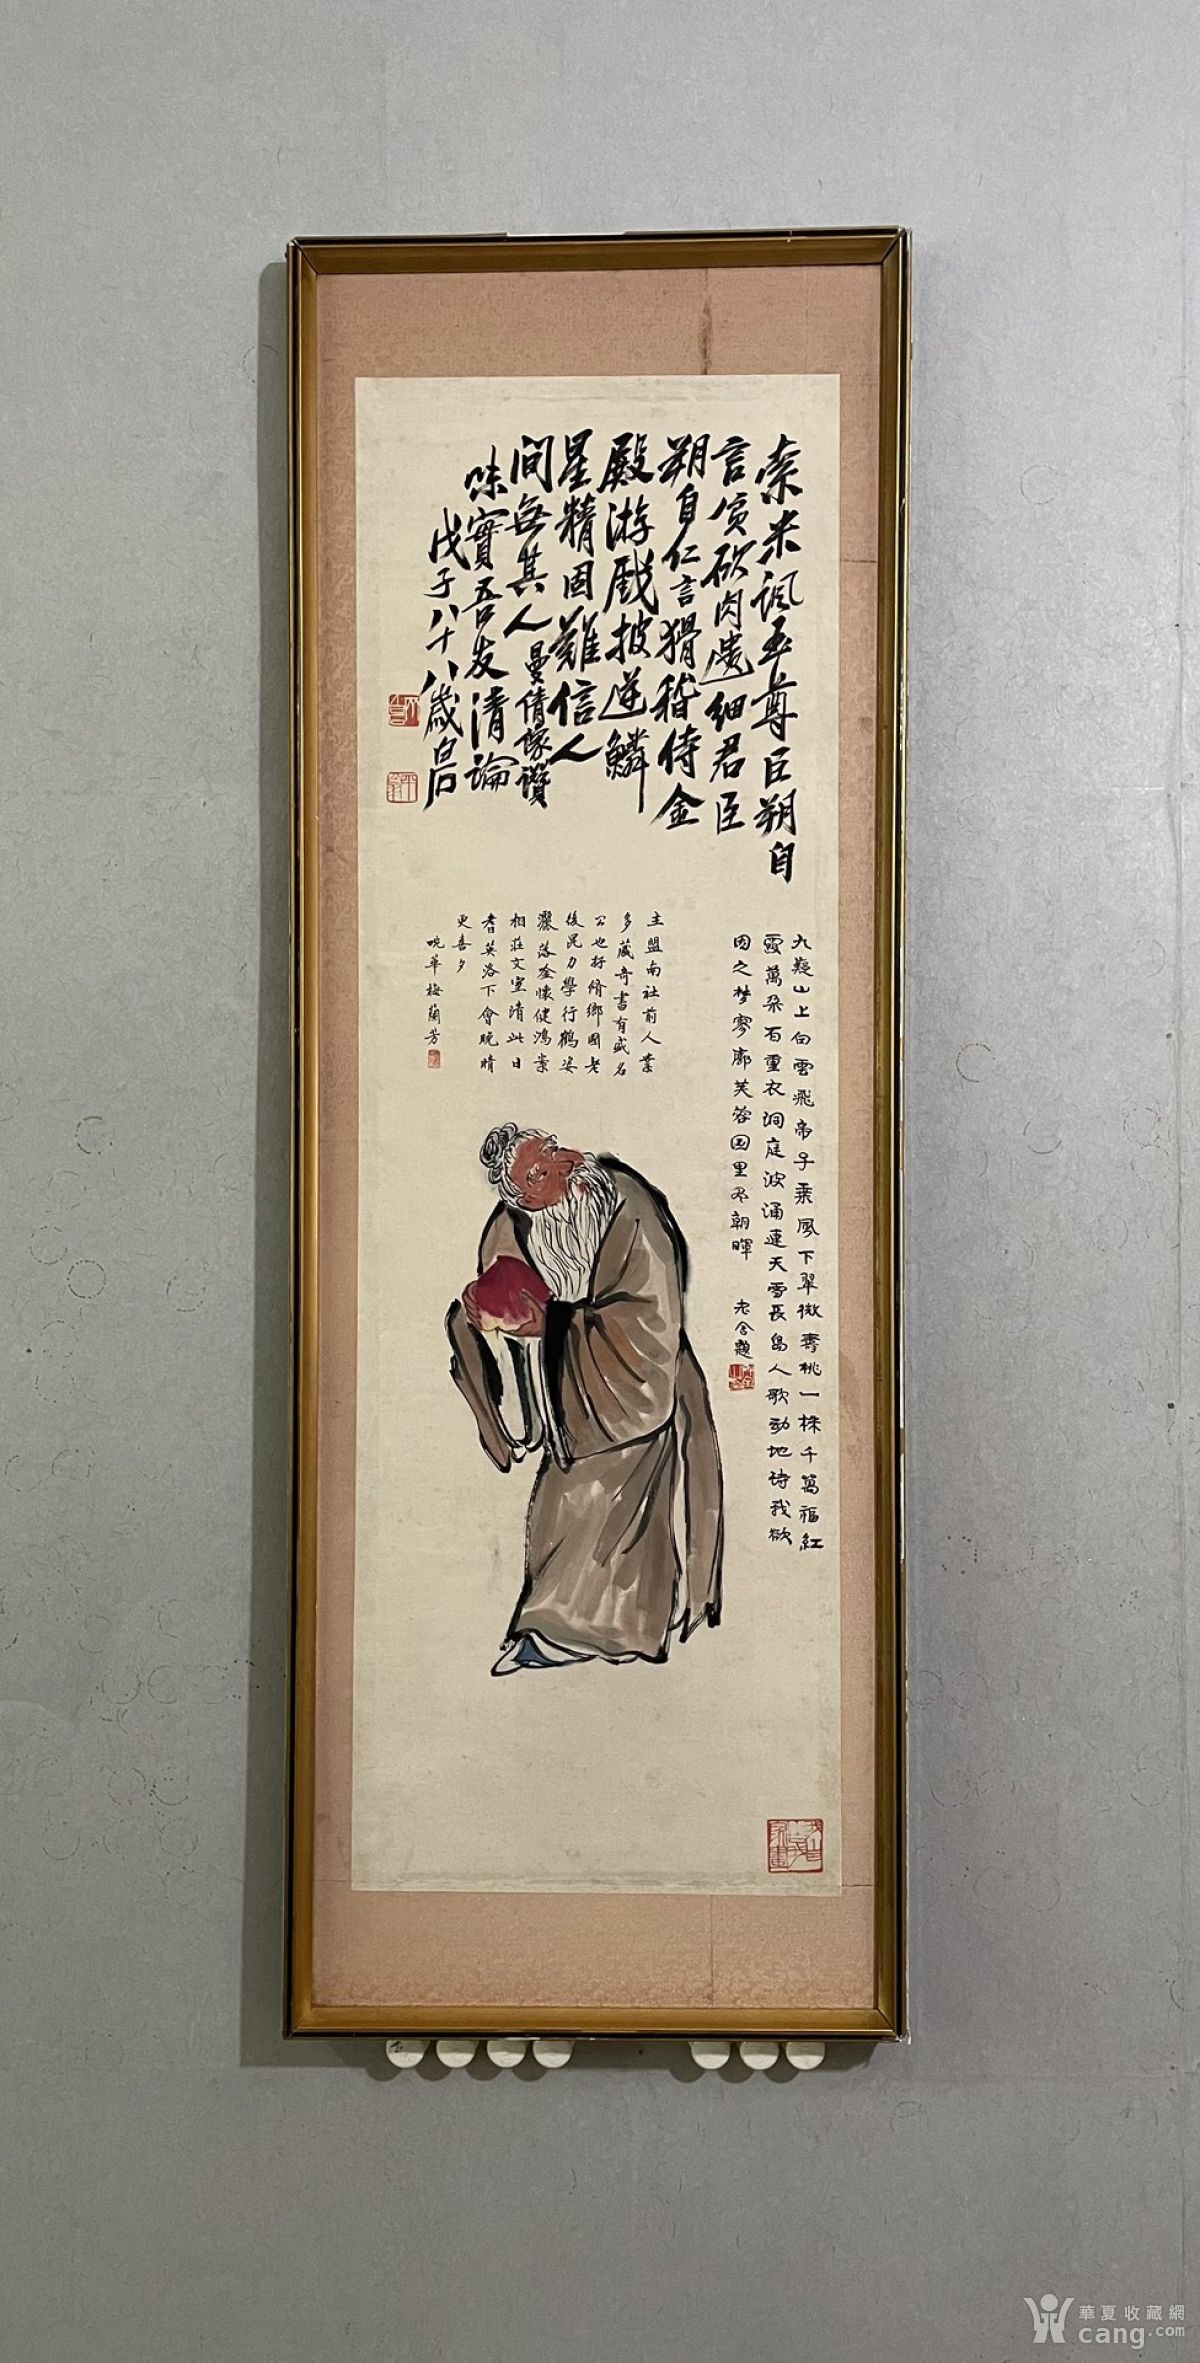 索米諷至尊臣朔自
言貧砍肉遺細君臣
朔自仁言猾稽侍金
殿游戲披逆鱗
星精固難信人
间無其人曼倩像讚
味實吾友清論
戊子八十八歲白石
九嶷山上白雲飛帝子乘風下翠微壽桃一株千萬福紅
霞萬朵百重衣洞庭波涌連天雪長島人歌動地诗我欲
因之梦寥廓芙蓉国里尽朝暉
老舍題
主盟南社前人業
多藏奇書有盛名
公也好脩鄉國老
後昆力學行鶴姿
灑落金懷健鴻案
相莊文室清此日
耆英洛下會晚晴
更喜夕
畹華梅蘭芳
華夏收藏網
cang.com